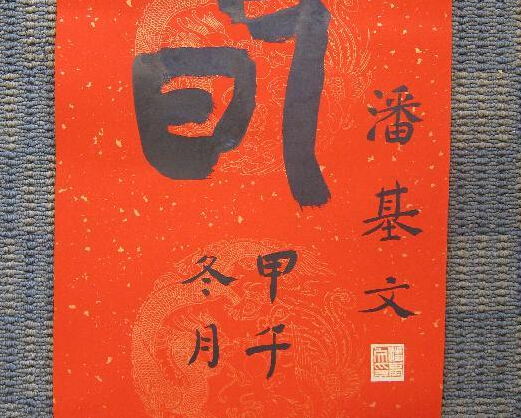 潘基文
甲午
冬月